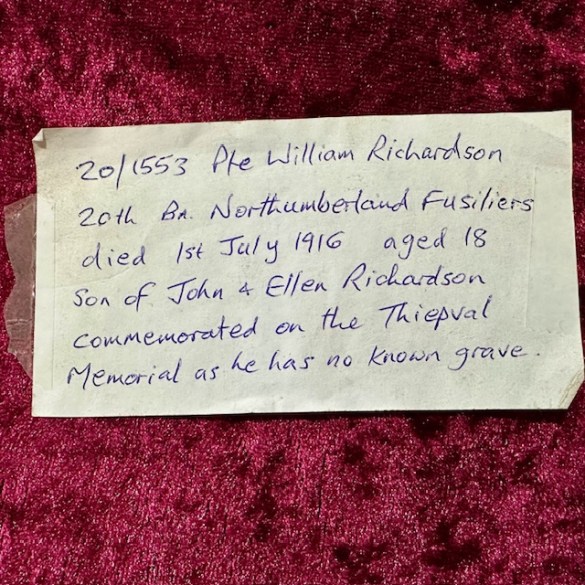 20/1553 Pte William Richardson
20th Bn. Northumberland Fusiliers
died 1st July 1916 aged 18
Son of John & Ellen Richardson
commemorated on the Thiepval
Memorial as he has no known grave.